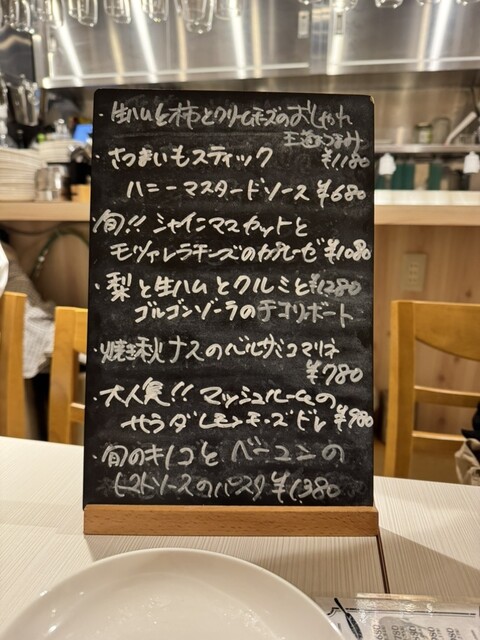 ・生ハムと柿とクリームチーズのおしゃれ
王道おつまみ
¥1180
・さつまいもスティック
ハニーマスタードソース ¥680
・旬!! シャインマスカットと
モッツァレラチーズのカプレーゼ ¥1080
・梨と生ハムとクルミと ¥1280
ゴルゴンゾーラのチコリボート
・焼き秋ナスのバルサミコマリネ
¥780
・大人気!! マッシュルームの
サラダ レモンチーズドレ ¥980
・旬のキノコとベーコンの
トマトソースのパスタ ¥1380